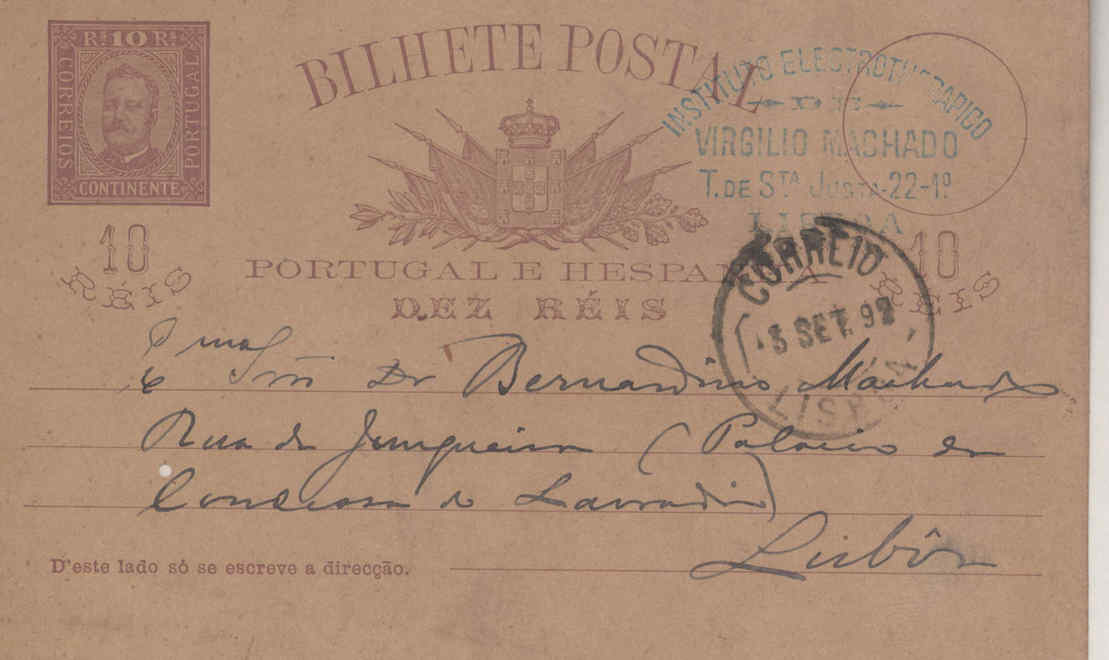 Rs 10 Rs
CORREIOS
PORTUGAL
CONTINENTE
BILHETE POSTAL
INSTITUTO ELECTROTHERAPICO
DE
VIRGILIO MACHADO
T. DE STA JUSTA-22-1º
LISBOA
10
RÉIS
10
RÉIS
PORTUGAL E HESPANHA
DEZ RÉIS
CORREIO
SET. 92
LISBOA
Emo Snr Dr Bernardino Machado
Rua da Junqueira (Palacio da
Condessa de Lavradio)
Lisbôa
D'este lado só se escreve a direcção.